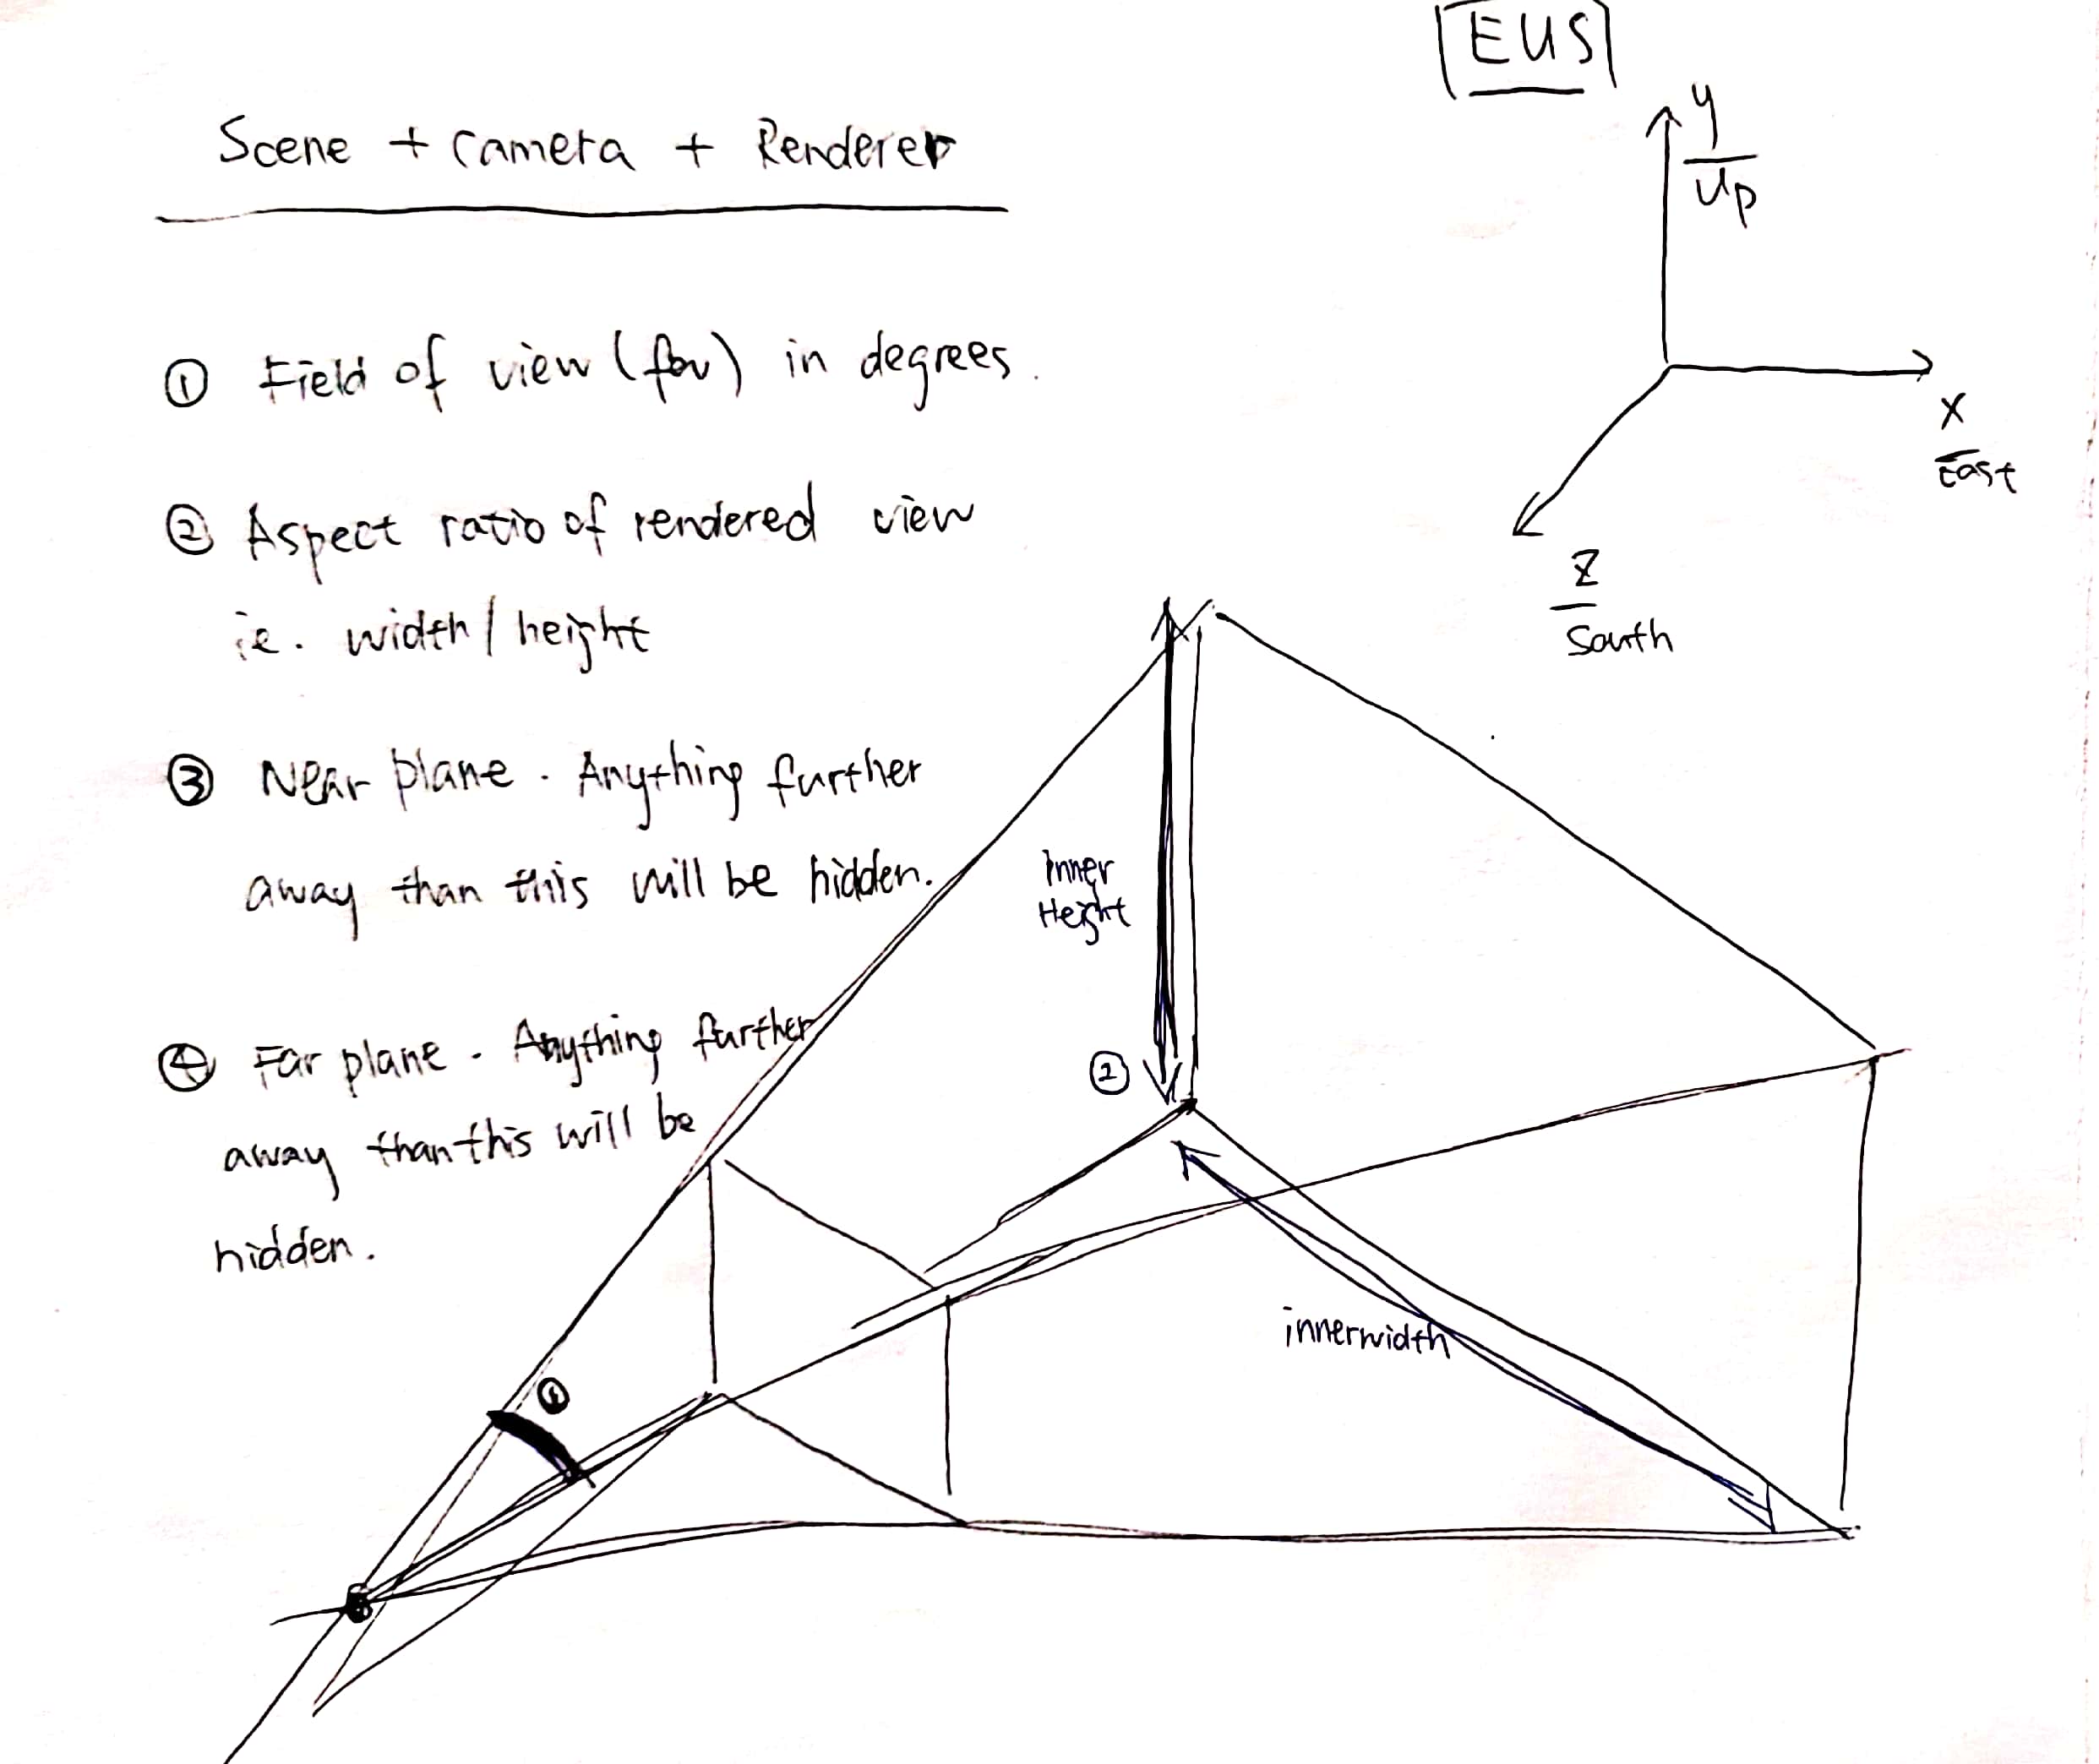 EUS
Scene + Camera + Renderer
y
Up
x
East
z
South
① Field of view (fov) in degrees.
② Aspect ratio of rendered view
ie. width / height
③ Near plane. Anything further
away than this will be hidden.
④ Far plane. Anything further
away than this will be
hidden.
Inner
Height
②
innerwidth
①